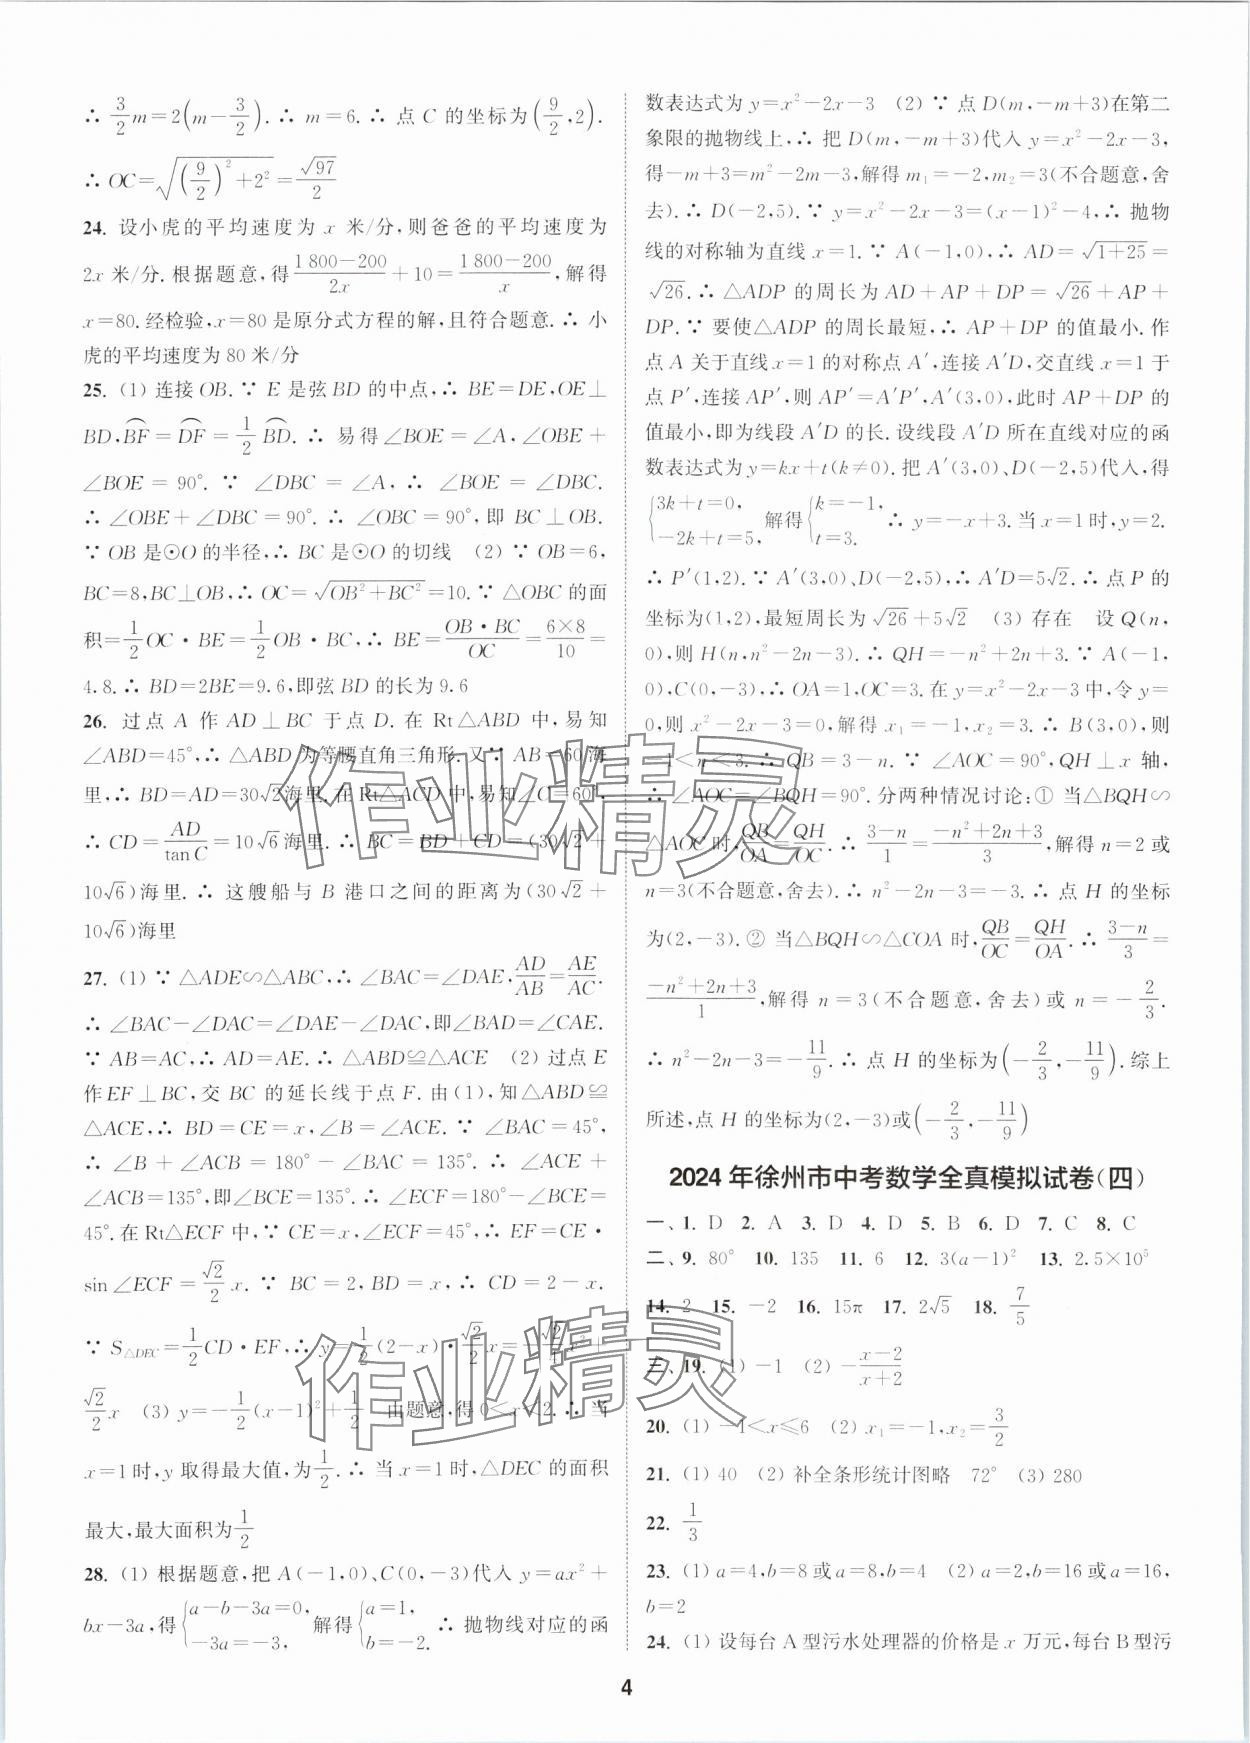 ∴ 3/2 m=2(m-3/2).∴ m=6.∴ 点 C 的坐标为(9/2,2).
∴ OC=√((9/2)²+2²)=√97/2
24. 设小虎的平均速度为 x 米/分,则爸爸的平均速度为
2x 米/分.根据题意,得(1 800-200)/2x+10=(1 800-200)/x,解得
x=80.经检验,x=80 是原分式方程的解,且符合题意.∴ 小
虎的平均速度为 80 米/分
25. (1) 连接 OB.∵ E 是弦 BD 的中点,∴ BE=DE,OE⊥
BD,⌒BF=⌒DF=1/2 ⌒BD.∴ 易得∠BOE=∠A,∠OBE+
∠BOE = 90°.∵ ∠DBC = ∠A,∴ ∠BOE = ∠DBC.
∴ ∠OBE+∠DBC=90°.∴ ∠OBC=90°,即 BC⊥OB.
∵ OB 是⊙O 的半径,∴ BC 是⊙O 的切线 (2) ∵ OB=6,
BC=8,BC⊥OB,∴ OC=√(OB²+BC²)=10.∵ △OBC 的面
积=1/2 OC·BE=1/2 OB·BC,∴ BE=OB·BC/OC=6×8/10=
4.8.∴ BD=2BE=9.6,即弦 BD 的长为 9.6
26. 过点 A 作 AD⊥BC 于点 D.在 Rt△ABD 中,易知
∠ABD=45°,∴ △ABD 为等腰直角三角形.又∵ AB=60 海
里,∴ BD=AD=30√2海里.在 Rt△ACD 中,易知∠C=60°,
∴ CD=AD/tan C=10√6海里.∴ BC=BD+CD=(30√2+
10√6)海里.∴ 这艘船与 B 港口之间的距离为(30√2+
10√6)海里
27. (1) ∵ △ADE∽△ABC,∴ ∠BAC=∠DAE,AD/AB=AE/AC.
∴ ∠BAC-∠DAC=∠DAE-∠DAC,即∠BAD=∠CAE.
∵ AB=AC,∴ AD=AE.∴ △ABD≌△ACE (2) 过点 E
作 EF⊥BC,交 BC 的延长线于点 F.由(1),知△ABD≌
△ACE,∴ BD=CE=x,∠B=∠ACE.∵ ∠BAC=45°,
∴ ∠B+∠ACB=180°-∠BAC=135°.∴ ∠ACE+
∠ACB=135°,即∠BCE=135°.∴ ∠ECF=180°-∠BCE=
45°.在 Rt△ECF 中,∵ CE=x,∠ECF=45°,∴ EF=CE·
sin∠ECF=√2/2 x.∵ BC=2,BD=x,∴ CD=2-x.
∵ S△DEC=1/2 CD·EF,∴ y=1/2(2-x)·√2/2 x=-√2/4 x²+
√2/2 x (3) y=-1/2(x-1)²+1/2 由题意,得 0<x<2.∴ 当
x=1 时,y 取得最大值,为1/2.∴ 当 x=1 时,△DEC 的面积
最大,最大面积为1/2
28. (1) 根据题意,把 A(-1,0)、C(0,-3)代入 y=ax²+
bx-3a,得{a-b-3a=0, -3a=-3, 解得{a=1, b=-2. ∴ 抛物线对应的函
数表达式为 y=x²-2x-3 (2) ∵ 点 D(m,-m+3)在第二
象限的抛物线上,∴ 把 D(m,-m+3)代入 y=x²-2x-3,
得-m+3=m²-2m-3,解得 m₁=-2,m₂=3(不合题意,舍
去).∴ D(-2,5).∵ y=x²-2x-3=(x-1)²-4,∴ 抛物
线的对称轴为直线 x=1.∵ A(-1,0),∴ AD=√(1+25)=
√26.∴ △ADP 的周长为 AD+AP+DP=√26+AP+
DP.∵ 要使△ADP 的周长最短,∴ AP+DP 的值最小.作
点 A 关于直线 x=1 的对称点 A′,连接 A′D,交直线 x=1 于
点 P′,连接 AP′,则 AP′=A′P′,A′(3,0),此时 AP+DP 的
值最小,即为线段 A′D 的长.设线段 A′D 所在直线对应的函
数表达式为 y=kx+t(k≠0).把 A′(3,0)、D(-2,5)代入,得
{3k+t=0, -2k+t=5, 解得{k=-1, t=3. ∴ y=-x+3.当 x=1 时,y=2.
∴ P′(1,2).∵ A′(3,0)、D(-2,5),∴ A′D=5√2.∴ 点 P 的
坐标为(1,2),最短周长为√26+5√2 (3) 存在 设 Q(n,
0),则 H(n,n²-2n-3).∴ QH=-n²+2n+3.∵ A(-1,
0)、C(0,-3),∴ OA=1,OC=3.在 y=x²-2x-3 中,令 y=
0,则 x²-2x-3=0,解得 x₁=-1,x₂=3.∴ B(3,0),则
-1<n<3.∴ QB=3-n.∵ ∠AOC=90°,QH⊥x 轴,
∴ ∠AOC=∠BQH=90°.分两种情况讨论:① 当△BQH∽
△AOC 时,QB/OA=QH/OC.∴ (3-n)/1=(-n²+2n+3)/3,解得 n=2 或
n=3(不合题意,舍去).∴ n²-2n-3=-3.∴ 点 H 的坐标
为(2,-3).② 当△BQH∽△COA 时,QB/OC=QH/OA.∴ (3-n)/3=
(-n²+2n+3)/1,解得 n=3(不合题意,舍去)或 n=-2/3.
∴ n²-2n-3=-11/9.∴ 点 H 的坐标为(-2/3,-11/9).综上
所述,点 H 的坐标为(2,-3)或(-2/3,-11/9)
2024 年徐州市中考数学全真模拟试卷(四)
一、1. D 2. A 3. D 4. D 5. B 6. D 7. C 8. C
二、9. 80° 10. 135 11. 6 12. 3(a-1)² 13. 2.5×10⁵
14. 2 15. -2 16. 15π 17. 2√5 18. 7/5
三、19. (1) -1 (2) -(x-2)/(x+2)
20. (1) -1<x≤6 (2) x₁=-1,x₂=3/2
21. (1) 40 (2) 补全条形统计图略 72° (3) 280
22. 1/3
23. (1) a=4,b=8 或 a=8,b=4 (2) a=2,b=16 或 a=16,
b=2
24. (1) 设每台 A 型污水处理器的价格是 x 万元,每台 B 型污
4
作业精灵
作业精灵